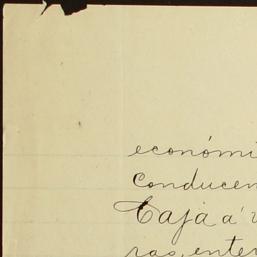 económi
conducen
Caja á
ras, enter